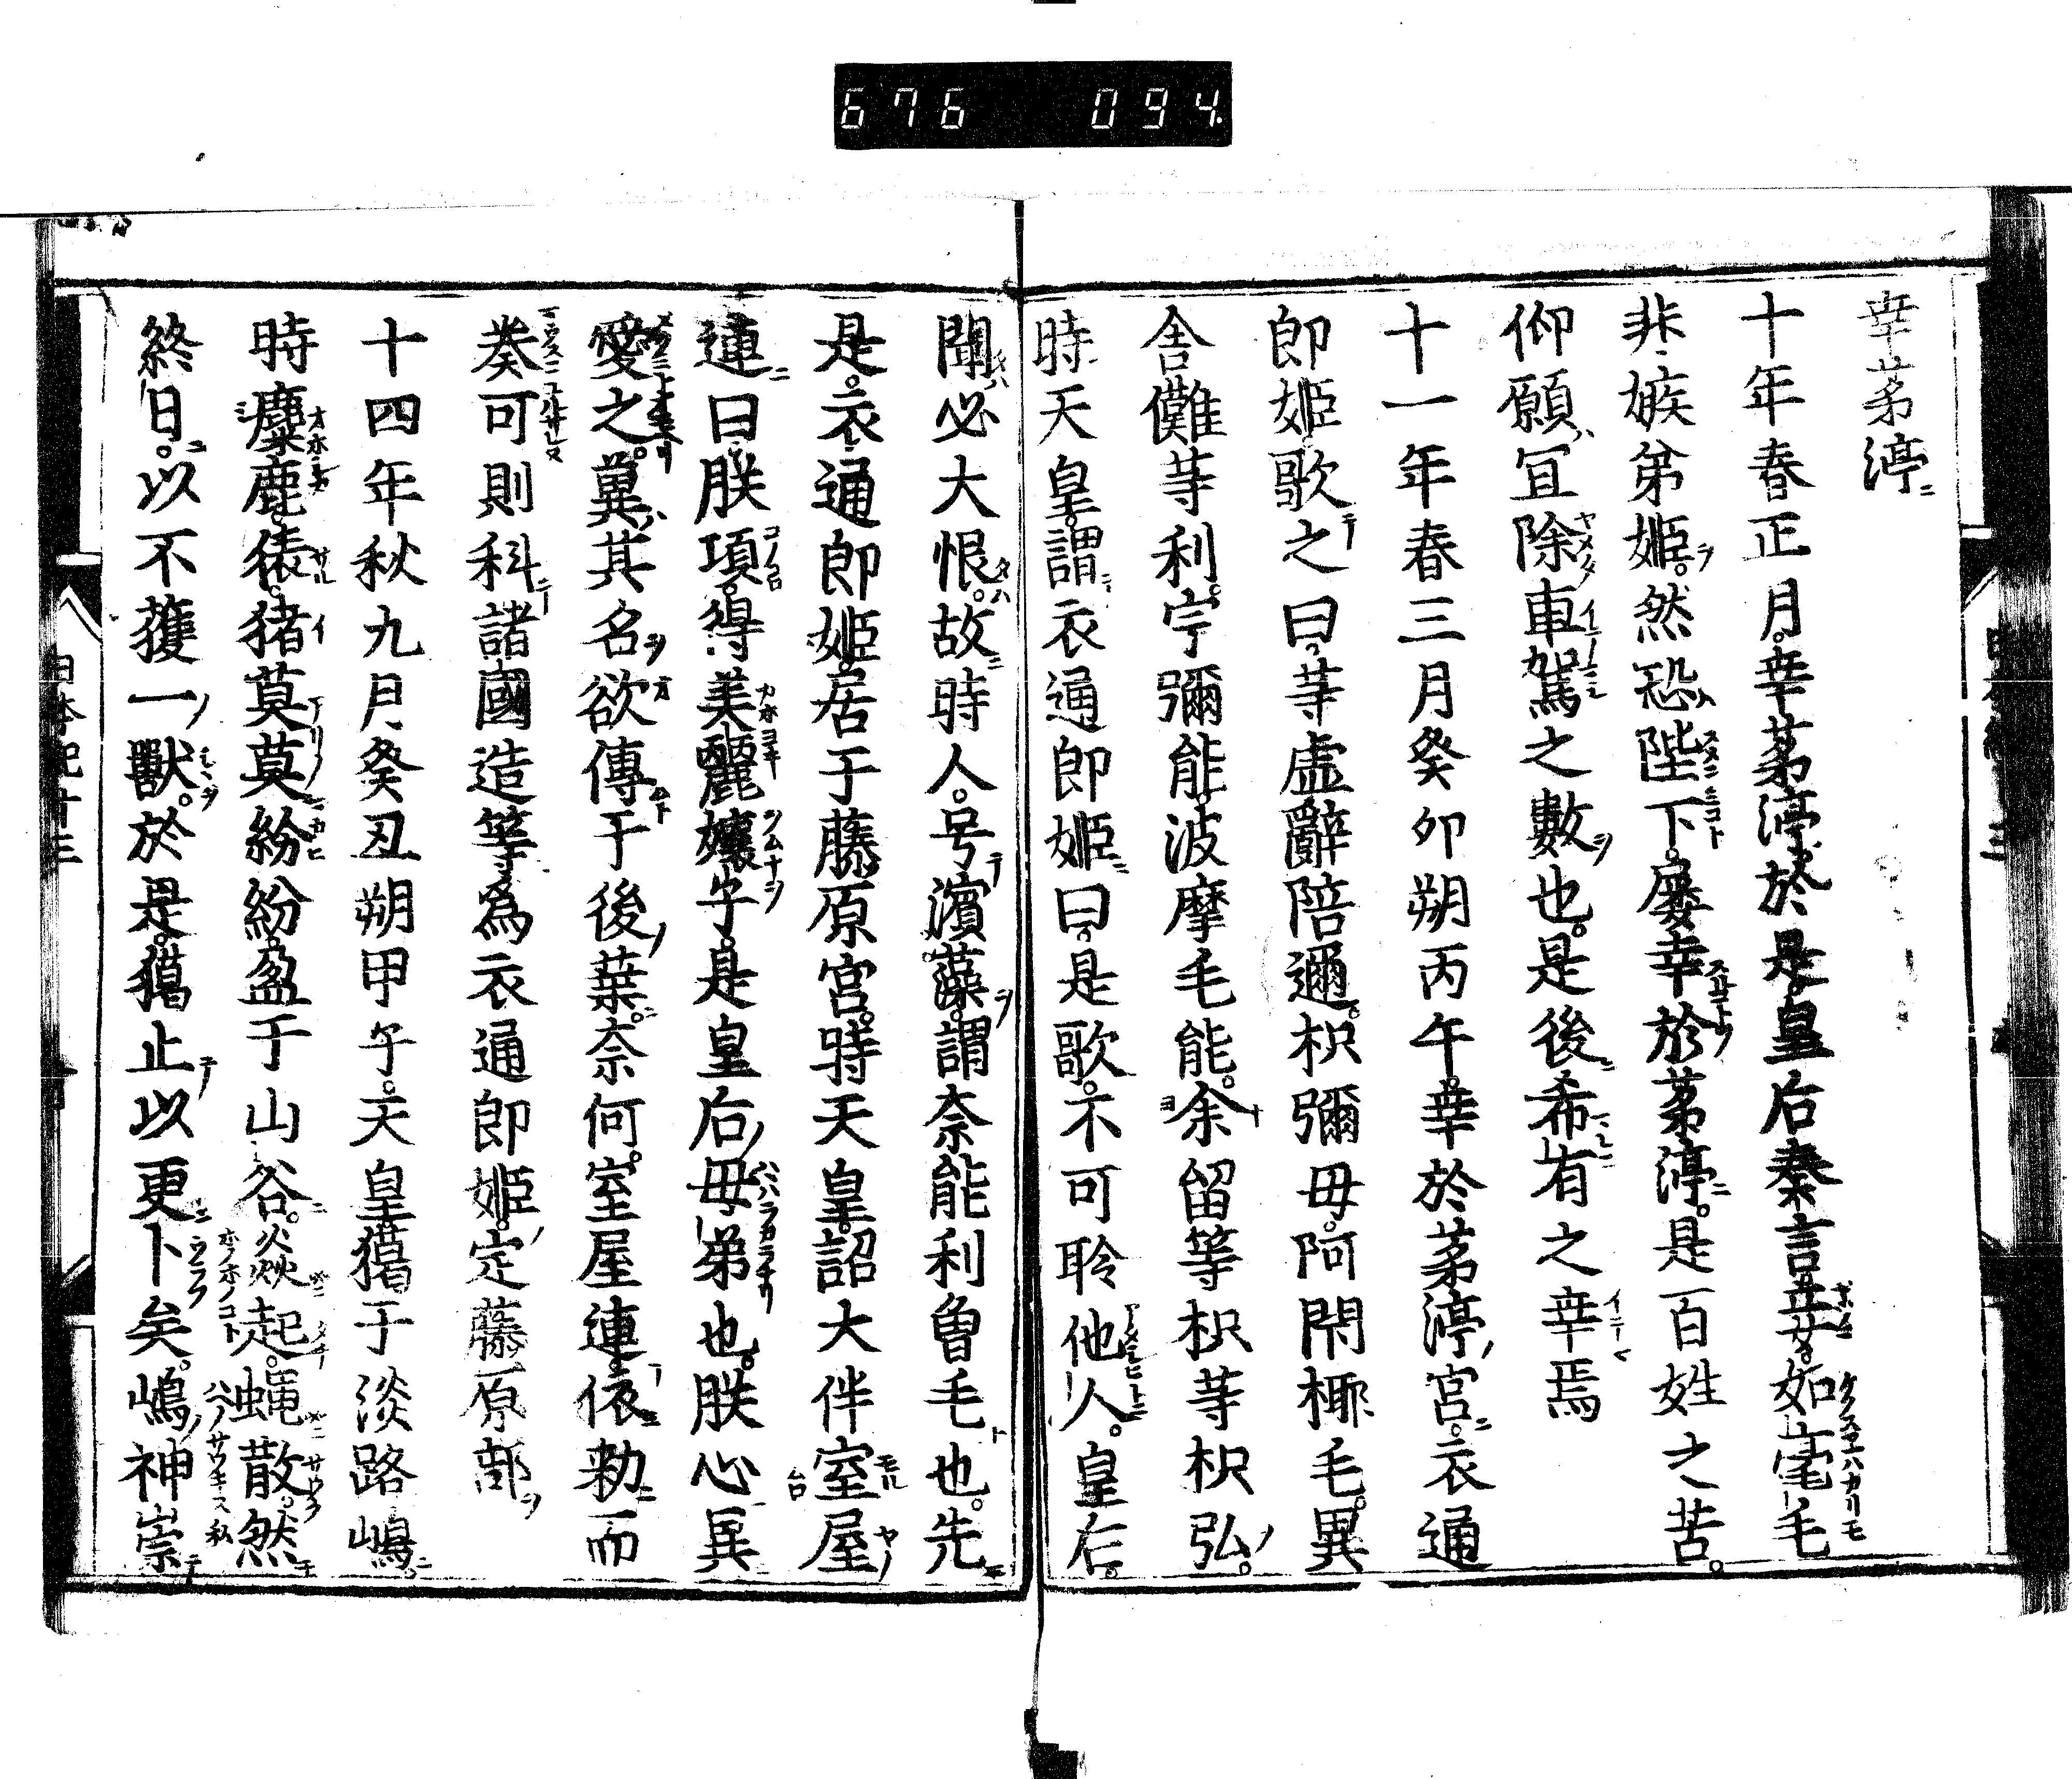 676 094.
幸茅渟
十年春正月。幸茅渟於是。皇后秦言。妾。如毫毛
非嫉弟姫。然恐陛下。屡幸於茅渟。是百姓之苦。
仰願宜除車駕之數也。是後希有之幸焉
十一年春三月癸卯朔丙午。幸於茅渟宮。衣通
郎姫。歌之曰。等虚辭陪邇。枳彌毋。阿閇椰毛。異
舎儺等利。宇彌能。波摩毛能。余留等枳等枳弘。
時天皇。謂衣通郎姫曰。是歌。不可聆他人。皇后。
聞必大恨。故時人。号濱藻。謂奈能利曽毛也。先
是。衣通郎姫。居于藤原宮。時天皇。詔大伴室屋
連曰。朕項。得美麗孃子。是皇后母弟也。朕心異
愛之。冀其名欲傳于後葉。奈何。室屋連。依勅而
奏可則科諸國造等為衣通郎姫。定藤原部
十四年秋九月癸丑朔甲子。天皇獦于淡路嶋。
時麋鹿。猨。猪莫莫紛紛。盈于山谷。焱起。蝿散。然
終日。以不獲一獸。於是。獦止以更卜矣。嶋神祟
日本紀十三